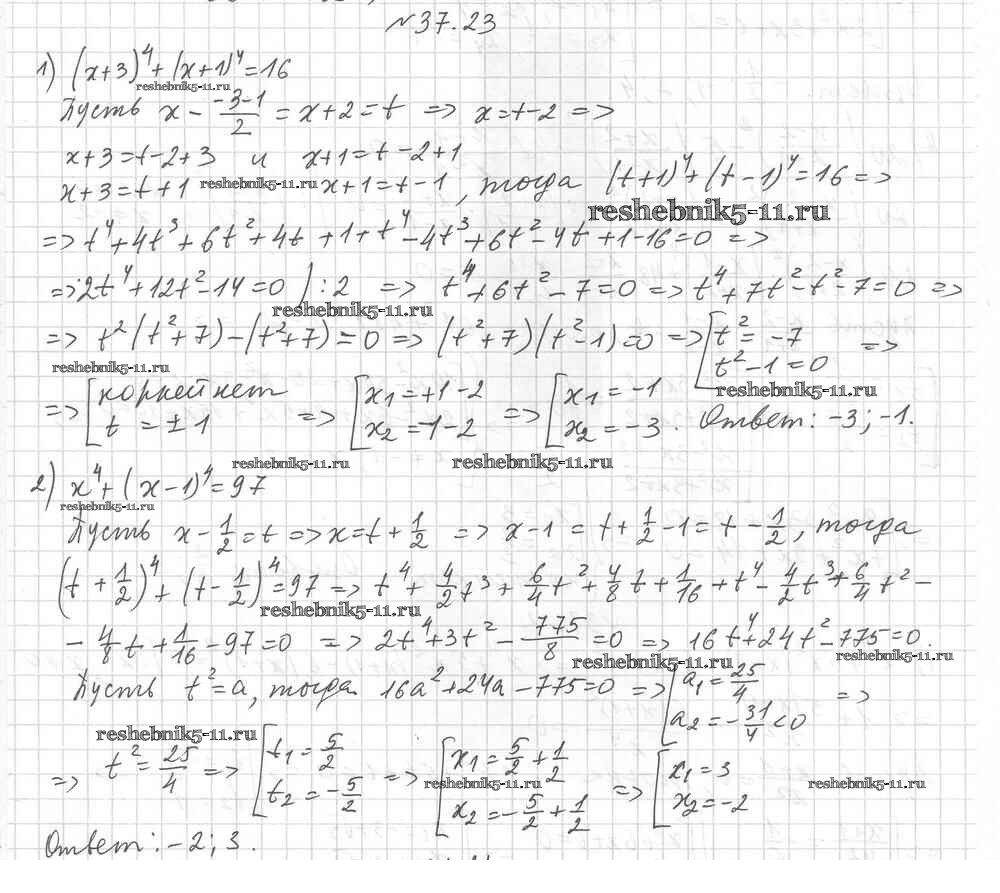 №37.23
1) (x+3)⁴+(x+1)⁴=16
reshebnik5-11.ru
Пусть x - (-3-1)/2 = x+2=t => x=t-2 =>
x+3=t-2+3 и x+1=t-2+1
x+3=t+1 reshebnik5-11.ru x+1=t-1, тогда (t+1)⁴+(t-1)⁴=16 =>
reshebnik5-11.ru
=> t⁴+4t³+6t²+4t+1+t⁴-4t³+6t²-4t+1-16=0 =>
=> 2t⁴+12t²-14=0 |:2 => t⁴+6t²-7=0 => t⁴+7t²-t²-7=0 =>
reshebnik5-11.ru
=> t²(t²+7)-(t²+7)=0 => (t²+7)(t²-1)=0 => [t²=-7; t²-1=0 =>
reshebnik5-11.ru reshebnik5-11.ru
=> [корней нет; t=±1 => [x₁=+1-2; x₂=-1-2 => [x₁=-1; x₂=-3. Ответ: -3; -1.
reshebnik5-11.ru reshebnik5-11.ru
2) x⁴+(x-1)⁴=97
reshebnik5-11.ru
Пусть x-1/2=t => x=t+1/2 => x-1=t+1/2-1=t-1/2, тогда
(t+1/2)⁴+(t-1/2)⁴=97 => t⁴+4/2t³+6/4t²+4/8t+1/16+t⁴-4/2t³+6/4t²-
reshebnik5-11.ru
-4/8t+1/16-97=0 => 2t⁴+3t²-775/8=0 => 16t⁴+24t²-775=0.
reshebnik5-11.ru reshebnik5-11.ru
Пусть t²=a, тогда 16a²+24a-775=0 => [a₁=25/4; a₂=-31/4<0 =>
reshebnik5-11.ru
=> t²=25/4 => [t₁=5/2; t₂=-5/2 => [x₁=5/2+1/2; x₂=-5/2+1/2 => [x₁=3; x₂=-2
reshebnik5-11.ru reshebnik5-11.ru
Ответ: -2; 3.